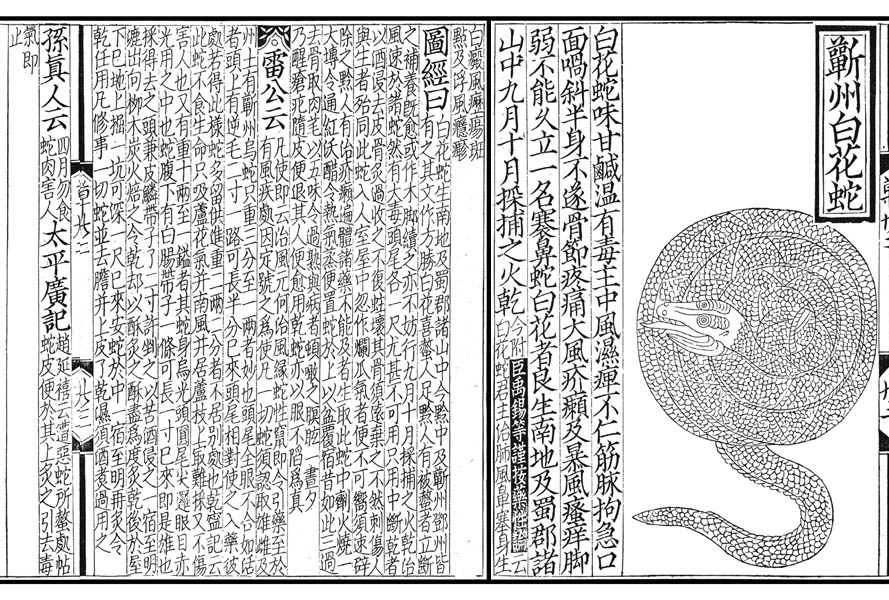 蘄州白花蛇
白花蛇味甘鹹温有毒主中風濕痺不仁筋脉拘急口
面喎斜半身不遂骨節疼痛大風疥癩及暴風瘙痒脚
弱不能久立一名褰鼻蛇白花者良生南地及蜀郡諸
山中九月十月採捕之火乾
今附臣禹錫等謹按藥性論云
白花蛇君主治肺風鼻塞身生
白癜風癧瘍斑
點及浮風癮疹
圖經曰
白花蛇生南地及蜀郡諸山中今黔中及蘄州鄧州皆
有之其文作方勝白花喜螫人足黔人有被螫者立斷
之補養旣愈或作木脚續之亦不妨行九月十月採捕之火乾治
風速於諸蛇然有大毒頭尾各一尺尤甚不可用只用中斷乾者
以酒浸去皮骨炙過收之不復蛀壞其骨須遠棄之不然刺傷人
與生者殆同此蛇入人室屋中忽作爛瓜氣者便不可嚮須速辟
除之黔人有治疥癩遍體諸藥不能及者生取此蛇中劑火燒一
大塼令通紅沃醋令熱氣蒸便置蛇於上以盆覆宿昔如此三過
去骨取肉芼以五味令過熟與病者頓噉之瞑眩一晝夕
乃醒瘡疕隨皮便退其人便愈用乾蛇亦以眼不陷爲真
雷公云
凡使即云治風元何治風緣蛇性竄即令引藥至於
有風疾處因定號之爲使凡一切蛇須認取雄雌及
州土有蘄州烏蛇只重三分至一兩者妙也頭尾全眼不合如活
者頭上有逆毛二寸一路可長半分巳來頭尾相對使之入藥彼
處若得此樣蛇多留供進重二兩三分者不居别處也乾寧記云
此蛇不食生命只吸蘆花氣并南風并居蘆枝上最難採又不傷
害人也又有重十兩至一鎰者其蛇身烏光頭圓尾尖邏眼目赤
光用之中也蛇腹下有白腸帶子一條可長一寸巳來即是雄也
採得去之頭兼皮鱗帶子了二寸許剉之以苦酒浸之一宿至明
漉出向柳木炭火焙之令乾却以酥炙之酥盡爲度炙乾後於屋
下巳地上掘一坑可深一尺巳來安蛇於中一宿至明再炙令
乾任用凡修事一切蛇並去膽并上皮了乾濕須酒煮過用之
孫眞人云
四月勿食
蛇肉害人
太平廣記
趙延禧云遭惡蛇所螫處帖
蛇皮便於其上炙之引去毒
氣即
止